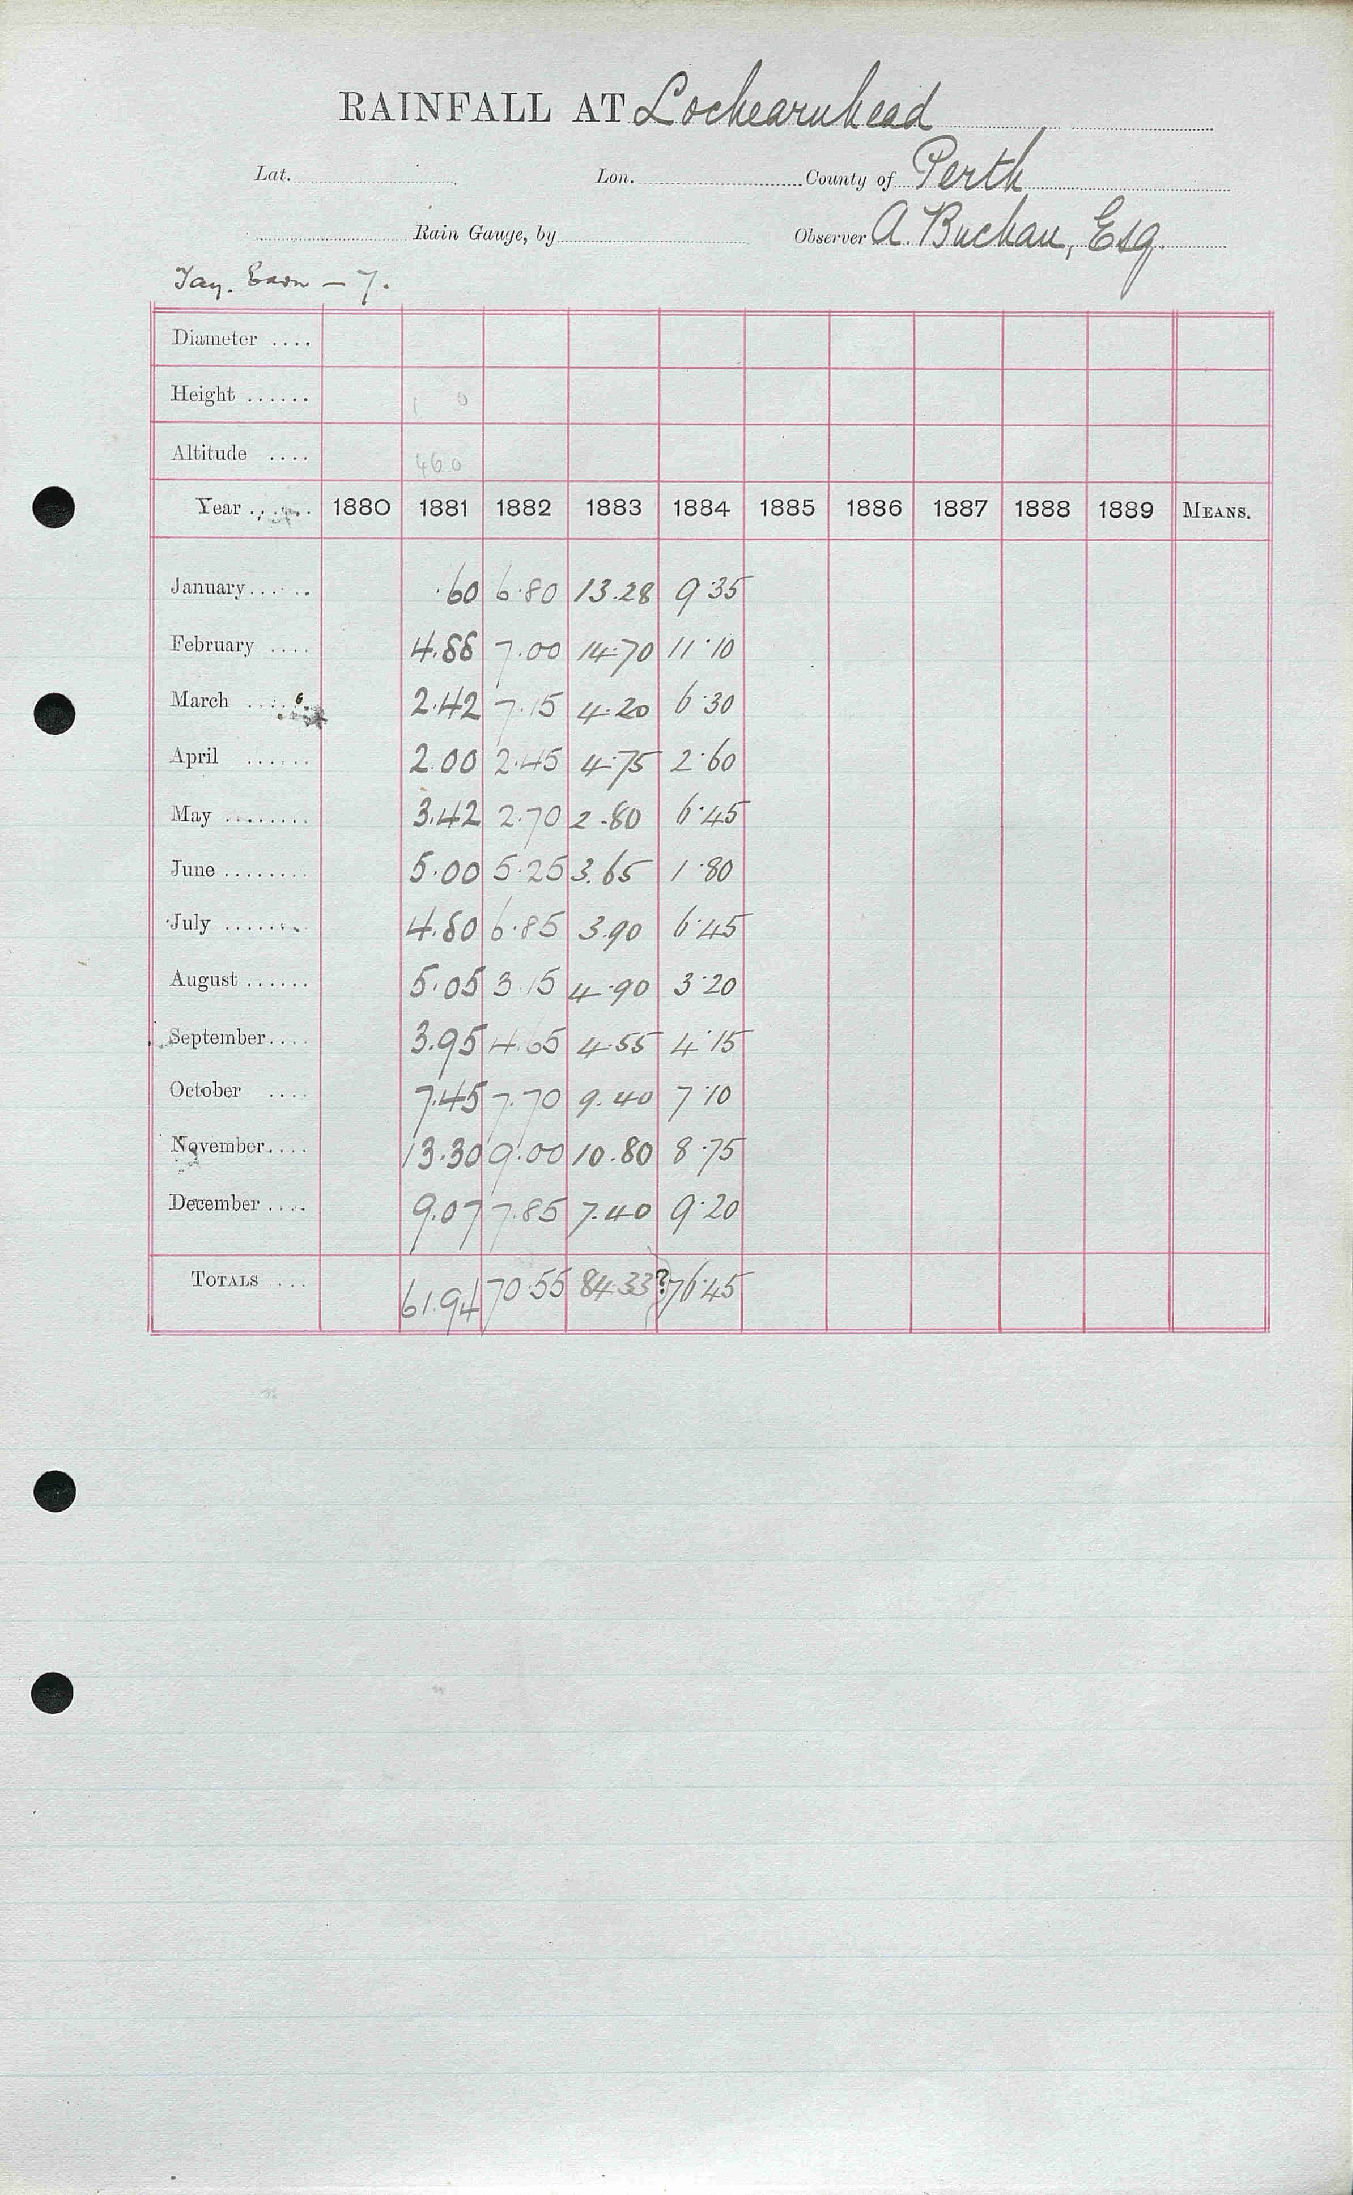 RAINFALL AT Lochearnhead
Lat. Lon. County of Perth
Rain Gauge, by Observer A. Buchan, Esq.
Tay. Earn – 7.
Diameter ....
Height ...... 1 0
Altitude .... 460
Year ...... 1880 1881 1882 1883 1884 1885 1886 1887 1888 1889 MEANS.
January...... .60 6.80 13.28 9.35
February .... 4.88 7.00 14.70 11.10
March ...... 2.42 7.15 4.20 6.30
April ...... 2.00 2.45 4.75 2.60
May ........ 3.42 2.70 2.80 6.45
June ........ 5.00 5.25 3.65 1.80
July ....... 4.80 6.85 3.90 6.45
August ...... 5.05 3.15 4.90 3.20
September.... 3.95 4.65 4.55 4.15
October .... 7.45 7.70 9.40 7.10
November.... 13.30 9.00 10.80 8.75
December .... 9.07 7.85 7.40 9.20
TOTALS ... 61.94 70.55 84.33? 76.45